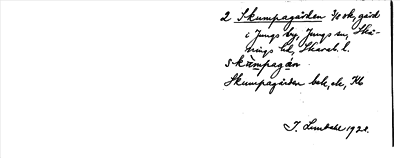 2 Skumpagården 3/8 mk, gård
i Jungs by, Jungs sn, Skå-
nings hd, Skarab. l.
skumpagan
Skumpagården bok, ek, Kb
I. Lundahl 1920.